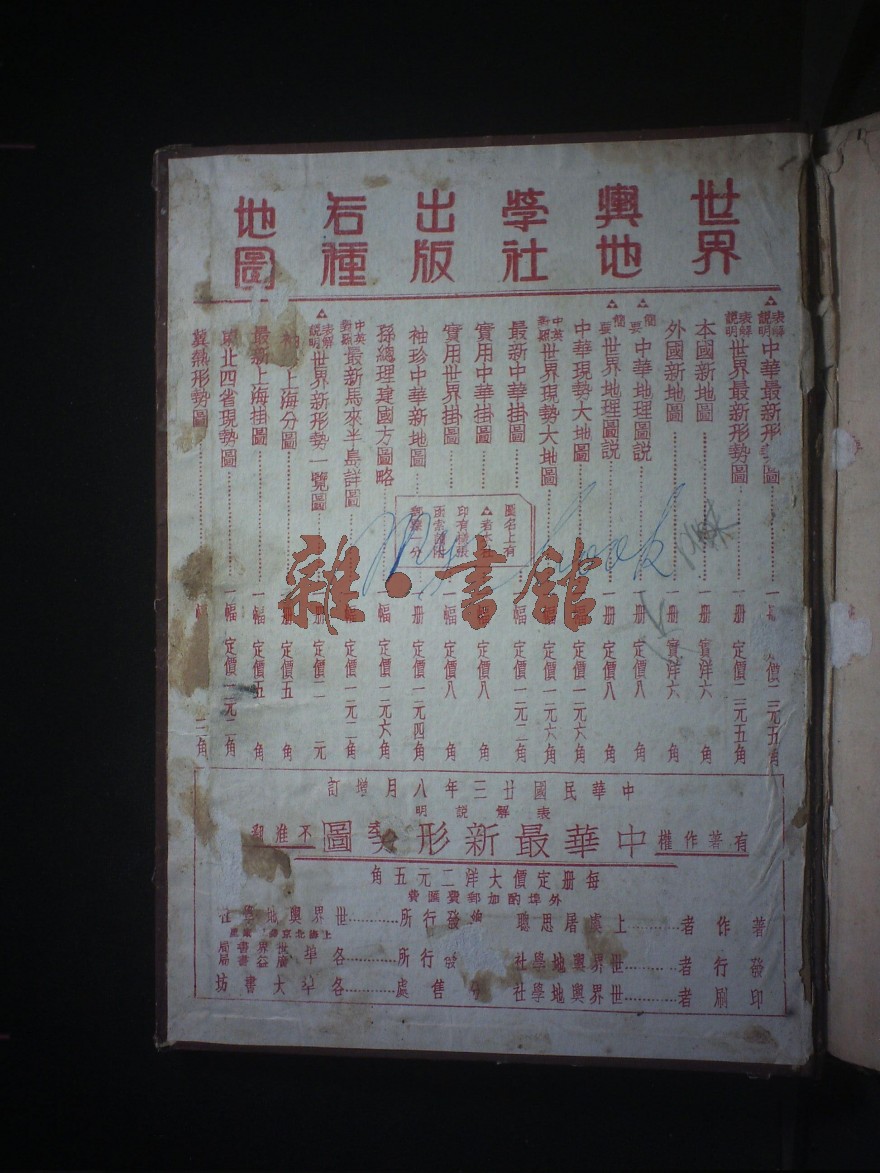 世界輿地學社出版各種地圖
表解說明中華最新形 圖 一 定價二元五角
表解說明世界最新形勢圖 一册 定價二元五角
本國新地圖 一册 實洋六角
外國新地圖 一册 實洋六角
簡要中華地理圖說 一册 定價八角
簡要世界地理圖說 一册 定價八角
中華現勢大地圖 一幅 定價一元六角
中英對照世界現勢大地圖 一幅 定價一元六角
最新中華掛圖 幅 定價一元二角
實用中華掛圖 幅 定價八角
實用世界掛圖 一幅 定價八角
袖珍中華新地圖 册 定價一元四角
孫總理建國方圖略 幅 定價一元六角
中英對照最新馬來半島詳圖 幅 定價一元二角
表解說明世界新形勢一覽圖 册 定價二元
袖 上海分圖 册 定價五角
最新上海掛圖 一幅 定價五角
東北四省現勢圖 一幅 定價一元二角
冀熱形勢圖 二角
圖名上有
△者
印有樣張
函索請附
郵票 分
My book
雜·書館
中華民國廿三年八月增訂
表解說明
有著作權 中華最新形勢圖 不准翻
每册定價大洋二元五角
外埠酌加郵費匯費
著作者 上虞屠思聰
發行者 世界輿地學社
印刷者 世界輿地學社
總發行所 世界輿地學社
上海北京路
發行所 各埠世界書局 廣益書局
分售處 各埠大書坊